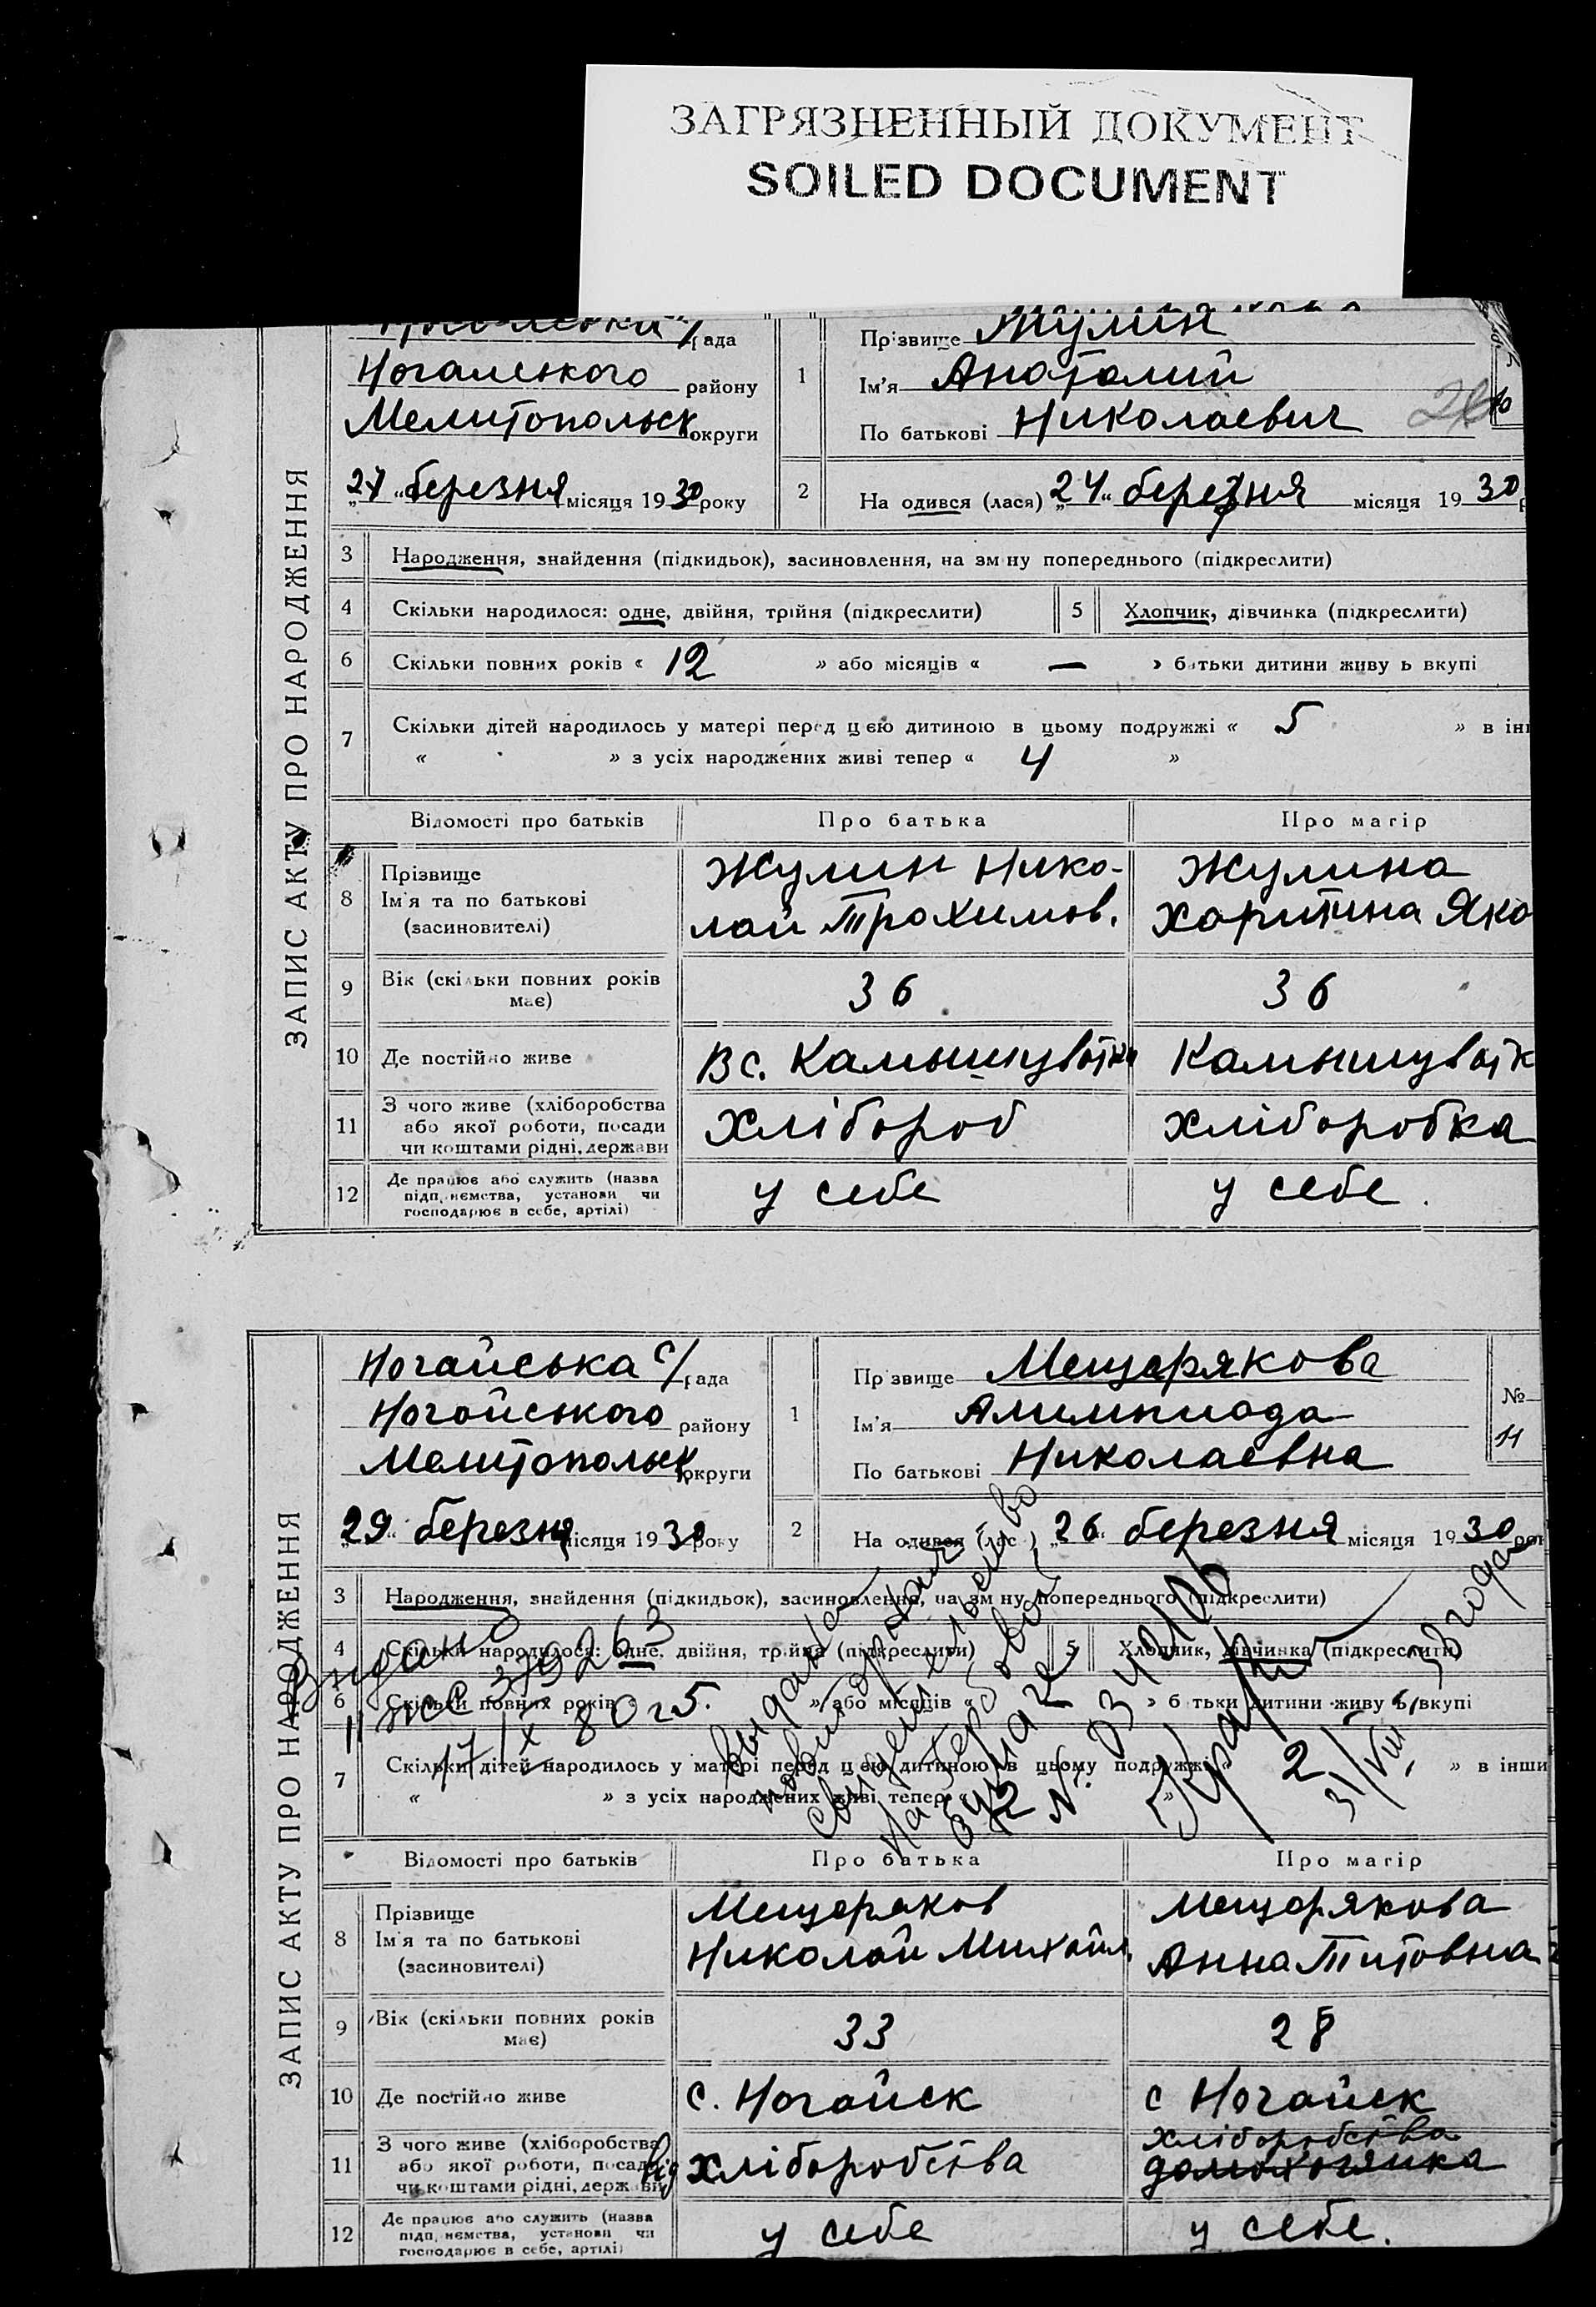 ЗАГРЯЗНЕННЫЙ ДОКУМЕНТ
SOILED DOCUMENT
ЗАПИС АКТУ ПРО НАРОДЖЕННЯ
рада
Ногайського району
Мелитопольск округи
„27“ березня місяця 1930 року
1
Прізвище Жулин
Ім'я Анатолий
По батькові Николаевич
2
На одився (лася) „24“ березня місяця 1930 р
3 Народження, знайдення (підкидьок), засиновлення, на зм ну попереднього (підкреслити)
4 Скільки народилося: одне, двійня, трійня (підкреслити)
5 Хлопчик, дівчинка (підкреслити)
6 Скільки повних років « 12 » або місяців « — » батьки дитини живу ь вкупі
7 Скільки дітей народилось у матері перед цею дитиною в цьому подружжі « 5 » в ін
« » з усіх народжених живі тепер « 4 »
Відомості про батьків Про батька Про матір
8 Прізвище
Ім'я та по батькові
(засиновителі)
Жулин Нико-
лай Трохимов.
Жулина
Харитина Яко
9 Вік (скільки повних років
має)
36 36
10 Де постійно живе
В с. Камышуватка Камышуватк
11 З чого живе (хліборобства
або якої роботи, посади
чи коштами рідні, держави
Хлібороб хліборобка
12 Де працює або служить (назва
підп, иємства, установи чи
господарює в себе, артілі)
у себе у себе.
ЗАПИС АКТУ ПРО НАРОДЖЕННЯ
Ногайська с/рада
Ногайського району
Мелитопольск округи
„29“ березня місяця 1930 року
1
Пр звище Мещерякова
Ім'я Алимпиада
По батькові Николаевна
№
11
2
На одився (лас ) „26“ березня місяця 1930 рок
3 Народження, знайдення (підкидьок), засиновлення, на зм ну попереднього (підкреслити)
4 Скільки народилося: одне, двійня, трійня (підкреслити)
5 Хлопчик, дівчинка (підкреслити)
6 Скільки повних років « 5. » або місяців « — » б тьки дитини живу ь вкупі
7 Скільки дітей народилось у матері перед цею дитиною в цьому подружжі « 2 » в інши
« » з усіх народжених живі тепер « 2 »
Выдано
17/X 80 г
выдано
повторное
свидетельство
31/VIII
Відомості про батьків Про батька Про матір
8 Прізвище
Ім'я та по батькові
(засиновителі)
Мещеряков
Николай Михайл.
Мещерякова
Анна Титовна
9 Вік (скільки повних років
має)
33 28
10 Де постійно живе
с. Ногайск с Ногайск
11 З чого живе (хліборобства
або якої роботи, посади
чи коштами рідні, держ ви
від хліборобства
хліборобства
домохозяйка
12 Де працює або служить (назва
підп, иємства, установи чи
господарює в себе, артілі)
у себе у себе.